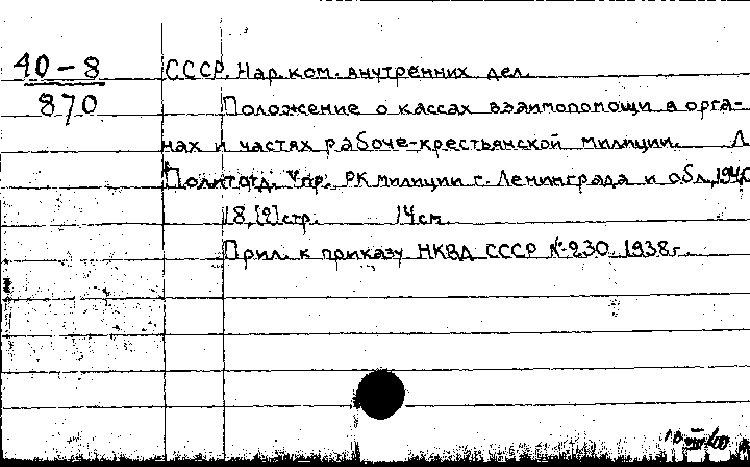 40-8
870
СССР. Нар. ком. внутренних дел.
Положение о кассах взаимопомощи в орга-
нах и частях рабоче-крестьянской милиции. Л
Политотд. Упр. РК милиции г. Ленинграда и обл., 1940
18, [2] стр. 14 см.
Прил. к приказу НКВД СССР № 230 1938 г.